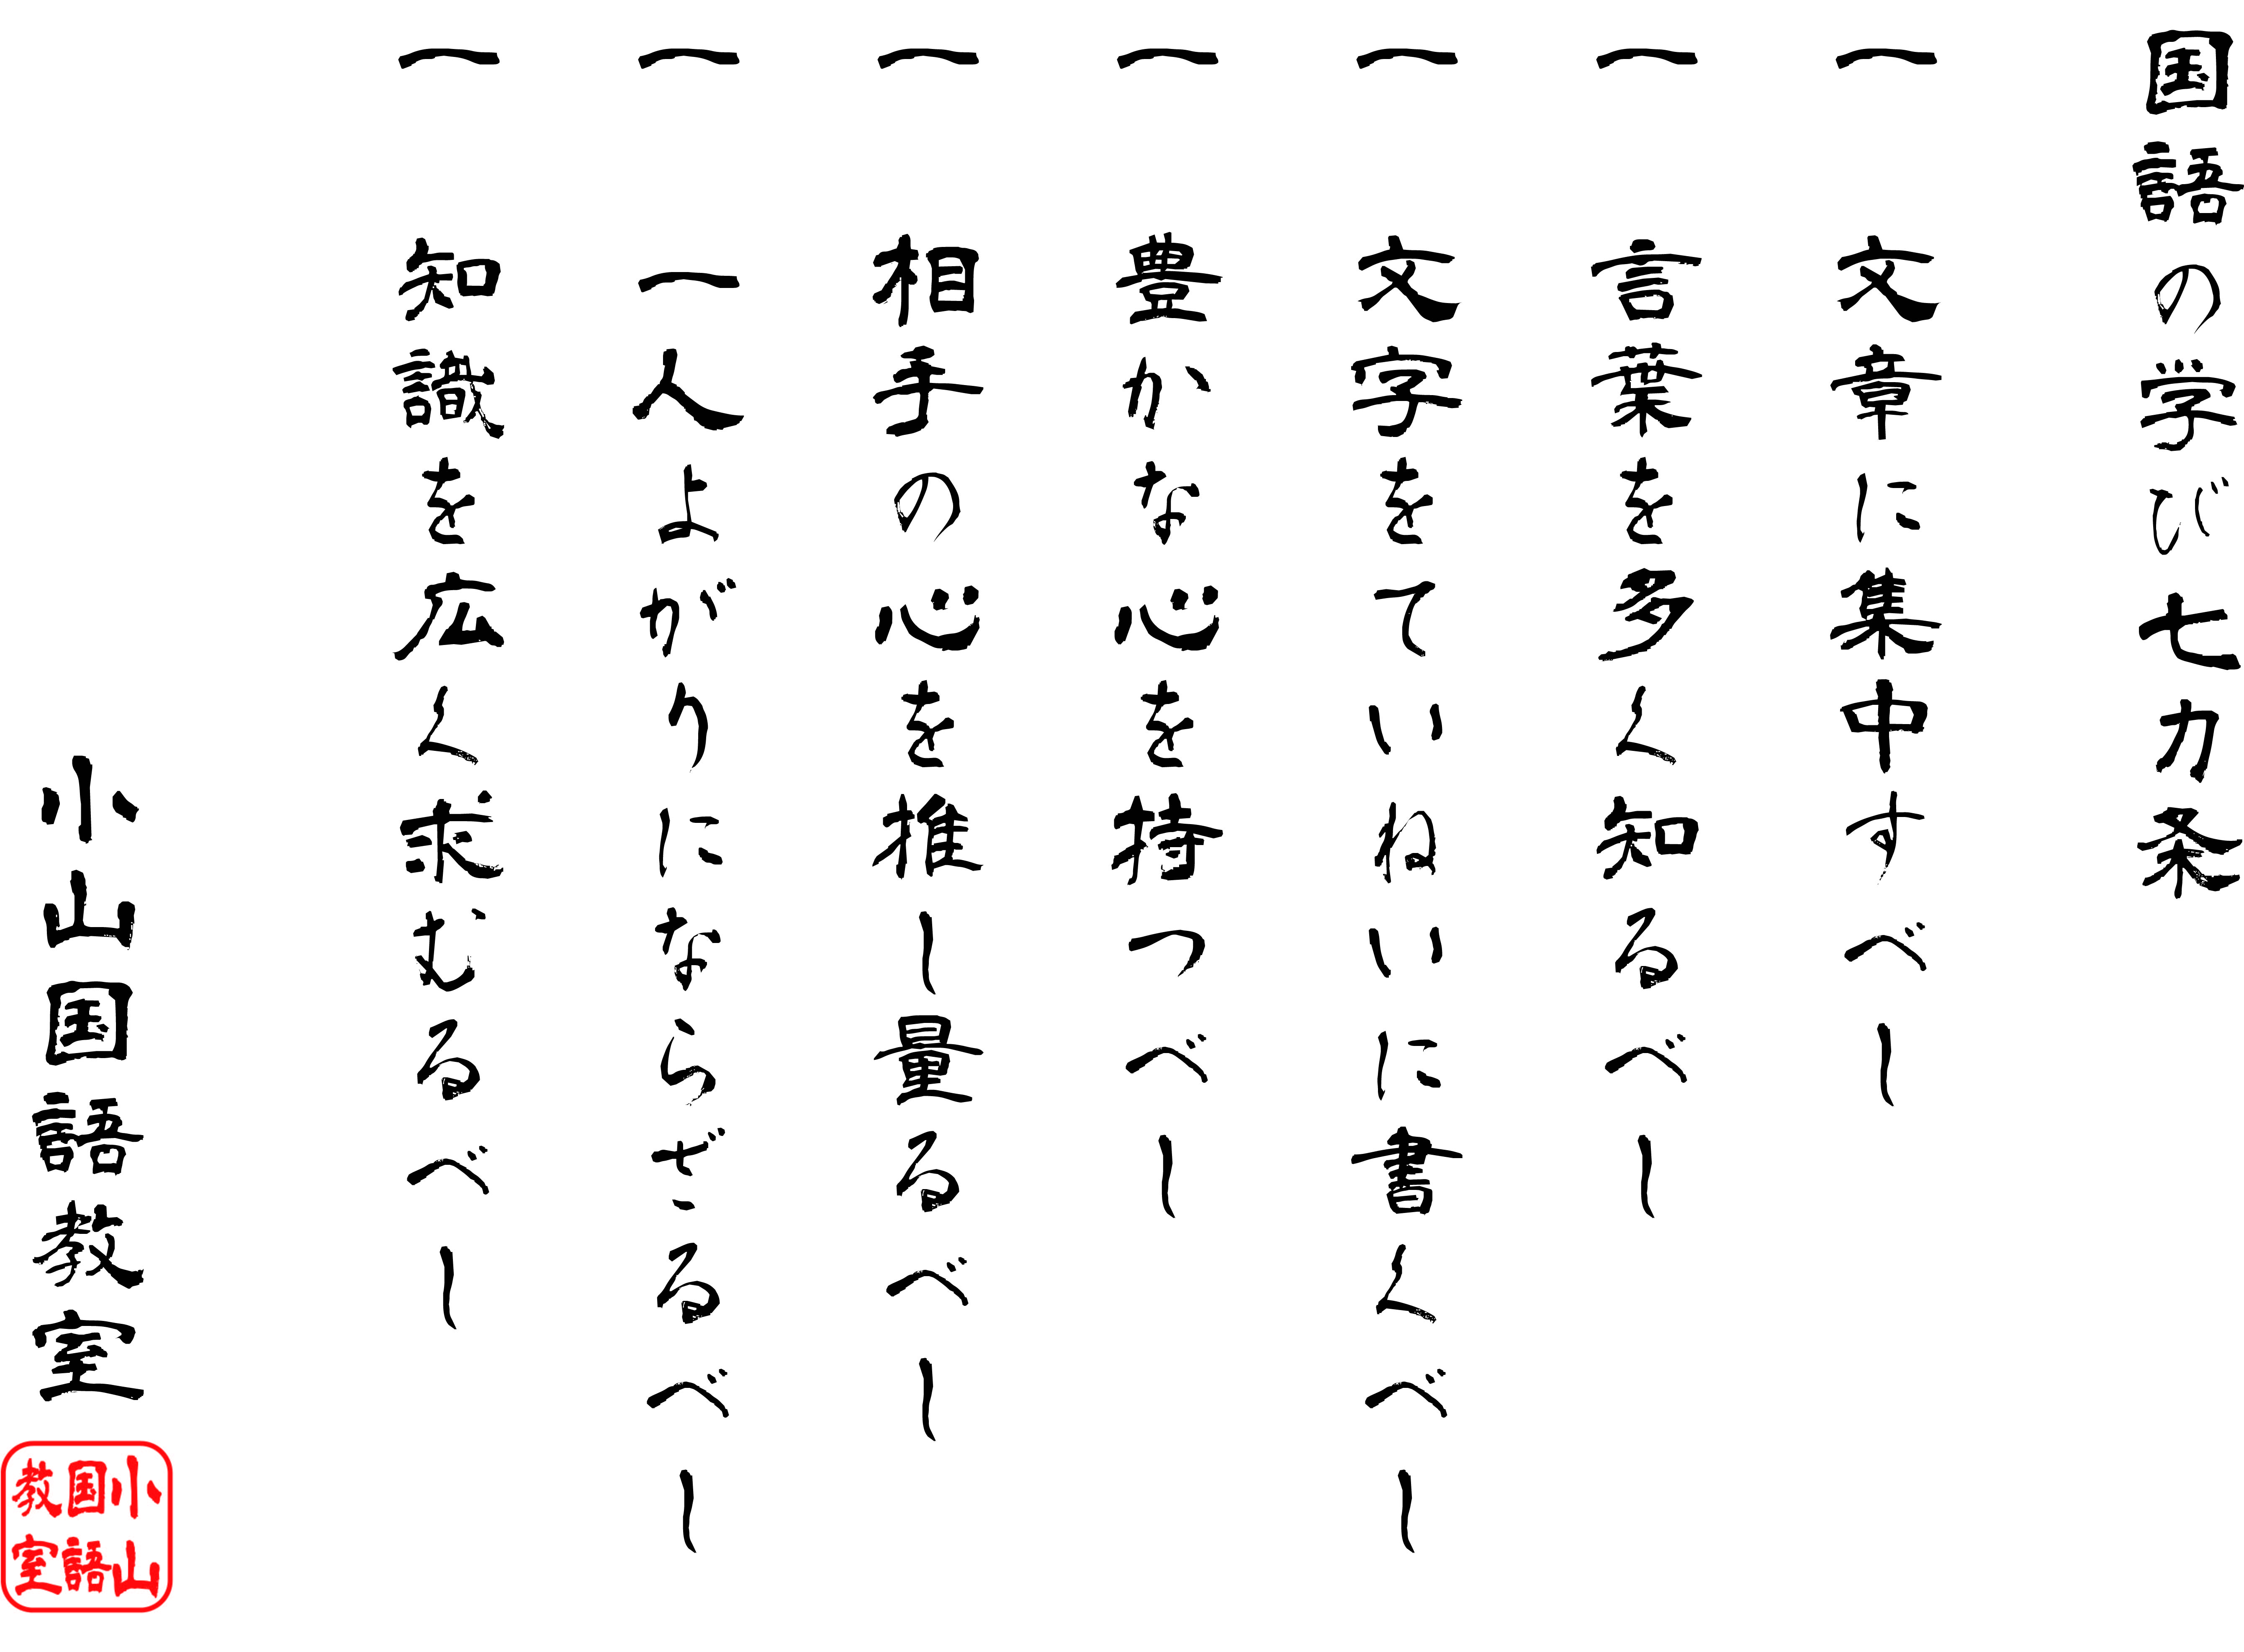 国語の学び七カ条
一 文章に集中すべし
一 言葉を多く知るべし
一 文字をていねいに書くべし
一 豊かな心を持つべし
一 相手の心を推し量るべし
一 一人よがりにならざるべし
一 知識を広く求むるべし
小山国語教室
小山
国語
教室